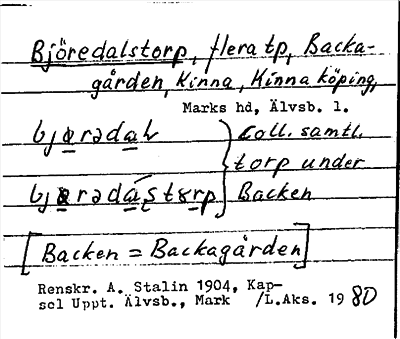 Björedalstorp, flera tp, Backa-
gården, Kinna, Kinna köping,
Marks hd, Älvsb. l.
bjørədaL } Coll. samtl.
torp under
bjørədástɤrp Backen
[Backen = Backagården]
Renskr. A. Stalin 1904, Kap-
sel Uppt. Älvsb., Mark /L.Aks. 1980